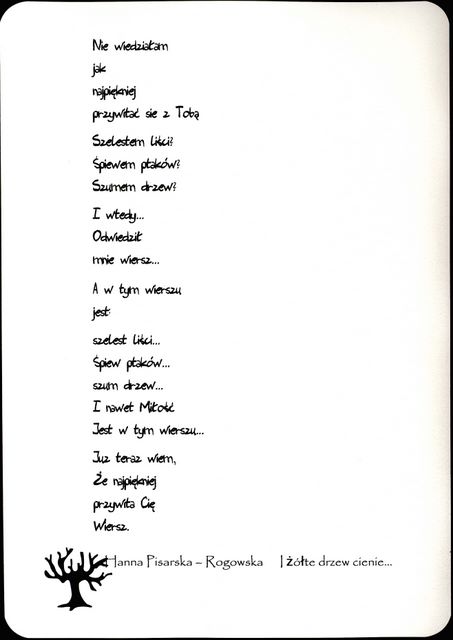 Nie wiedziałam
jak
najpiękniej
przywitać sie z Tobą
Szelestem liści?
Śpiewem ptaków?
Szumem drzew?
I wtedy...
Odwiedził
mnie wiersz...
A w tym wierszu
jest:
szelest liści...
Śpiew ptaków...
szum drzew...
I nawet Miłość
Jest w tym wierszu...
Juz teraz wiem,
Że najpiękniej
przywita Cię
Wiersz.
Hanna Pisarska – Rogowska I żółte drzew cienie...